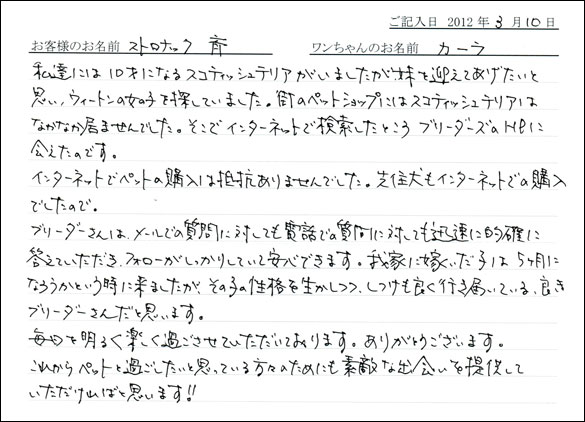 ご記入日 2012 年 3 月 10 日
お客様のお名前 ストロナック 斉 ワンちゃんのお名前 カーラ
私達には10才になるスコティッシュテリアがいましたが妹を迎えてあげたいと
思い、ウィートンの女の子を探していました。街のペットショップにはスコティッシュテリアは
なかなか居ませんでした。そこでインターネットで検索したところ ブリーダーズのHPに
会えたのです。
インターネットでペットの購入は抵抗ありませんでした。先住犬もインターネットでの購入
でしたので。
ブリーダーさんは、メールでの質問に対しても電話での質問に対しても迅速に的確に
答えていただき、フォローがしっかりしていて安心できます。我家に嫁いだ子は 5ヶ月に
なろうかという時に来ましたが、その子の性格を生かしつつ、しつけも良く行き届いている、良き
ブリーダーさんだと思います。
毎日を明るく楽しく過ごさせていただいております。ありがとうございます。
これからペットと過ごしたいと思っている方々のためにも素敵な出会いを提供して
いただければと思います!!